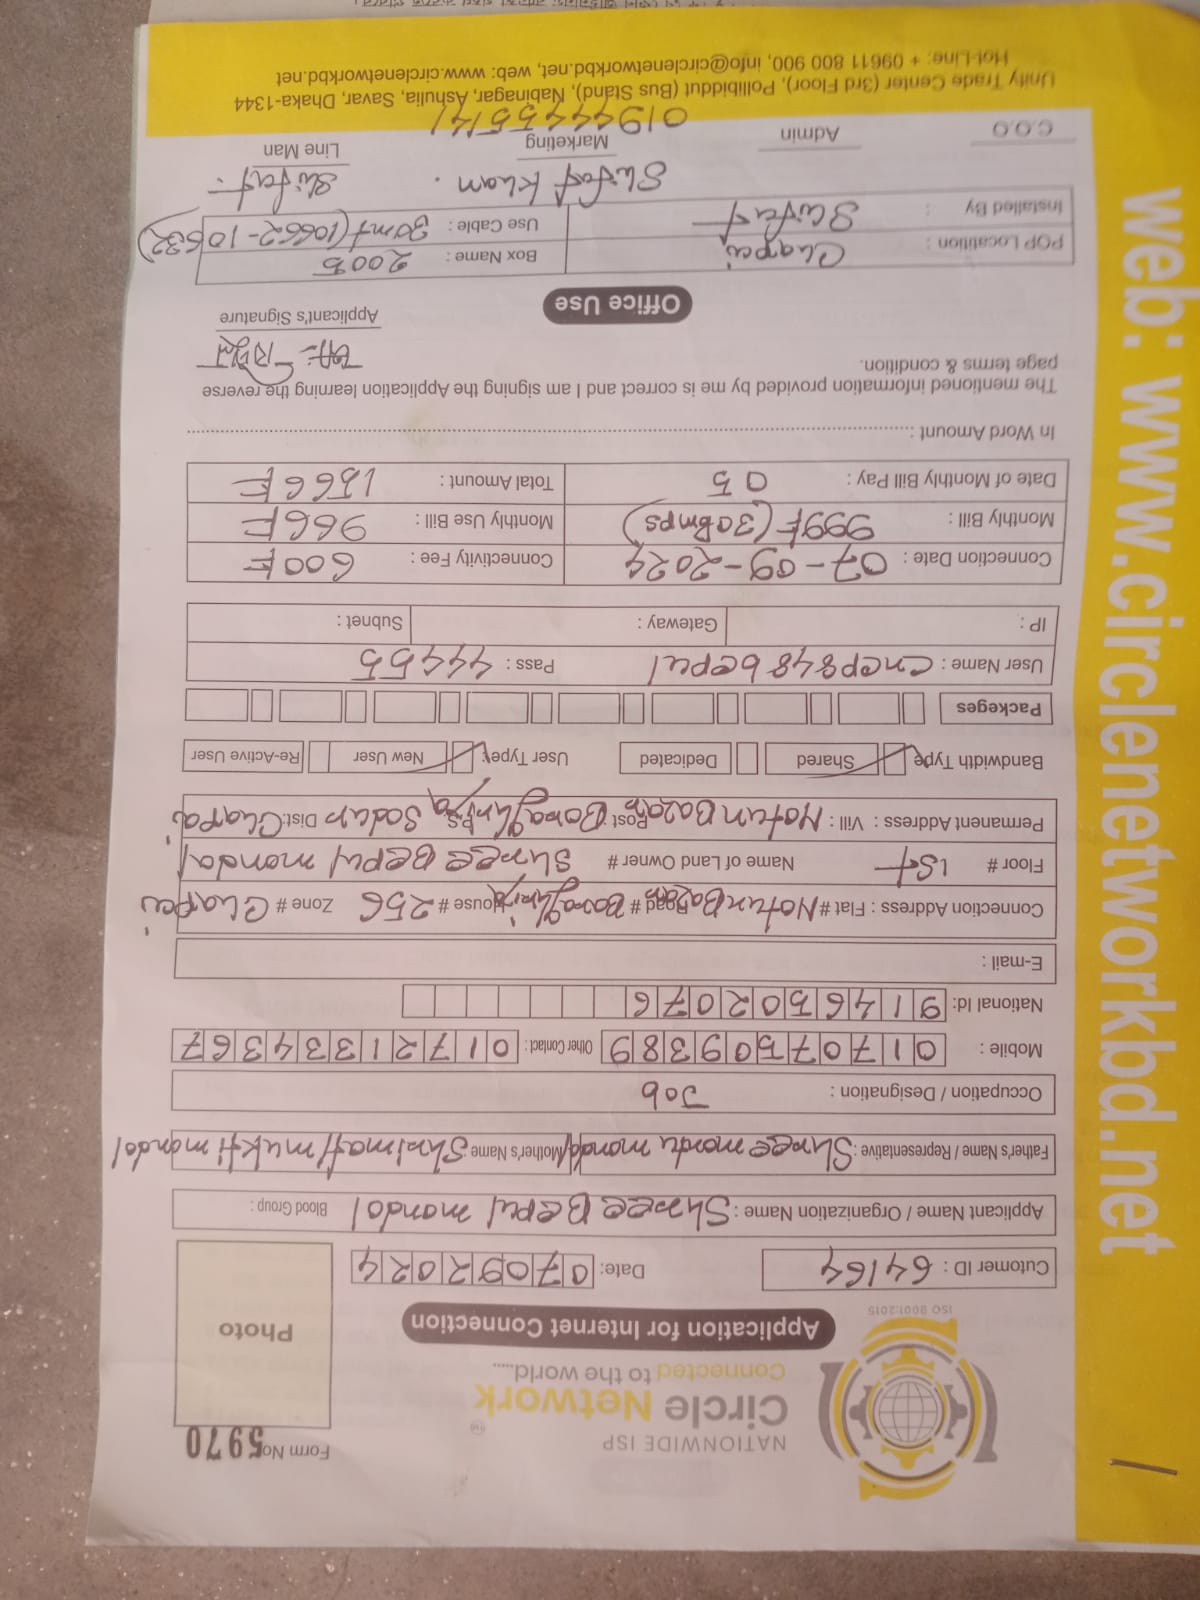 NATIONWIDE ISP
Circle Network
Connected to the world.....
ISO 9001:2015
Form No 5970
Photo
Application for Internet Connection
Cutomer ID : 64164 Date: 07092024
Applicant Name / Organization Name : Shree Bepul mondol Blood Group :
Father's Name / Representative : Shree montu mondol Mother's Name : Shrimati mukti mondol
Occupation / Designation : Job
Mobile : 01707509389 Other Contact : 01721334367
National Id: 9146502076
E-mail :
Connection Address : Flat # Notun Bazar Road # Baraghuriya House # 256 Zone # Chapai
Floor # 1st Name of Land Owner # Shree Bepul mondal
Permanent Address : Vill : Notun Bazar Post: Baraghuriya P.S: Sadar Dist: Chapai
Bandwidth Type Shared Dedicated User Type: New User Re-Active User
Packeges
User Name : cnep848bepul Pass : 44455
IP : Gateway : Subnet :
Connection Date : 07-09-2024 Connectivity Fee : 600৳
Monthly Bill : 999৳ (30Bmps) Monthly Use Bill : 966৳
Date of Monthly Bill Pay : 05 Total Amount : 1566৳
In Word Amount :
The mentioned information provided by me is correct and I am signing the Application learning the reverse
page terms & condition.
Applicant's Signature
Office Use
POP Locatition : Chapai Box Name : 2005
Installed By : Shifat Use Cable : 30mt (10662-10632)
Shifat Khan. Shifat
C.O.O Admin Marketing Line Man
01944455141
Unity Trade Center (3rd Floor), Pollibiddut (Bus Stand), Nabinagar, Ashulia, Savar, Dhaka-1344
Hot-Line: + 09611 800 900, info@circlenetworkbd.net, web: www.circlenetworkbd.net
web: www.circlenetworkbd.net